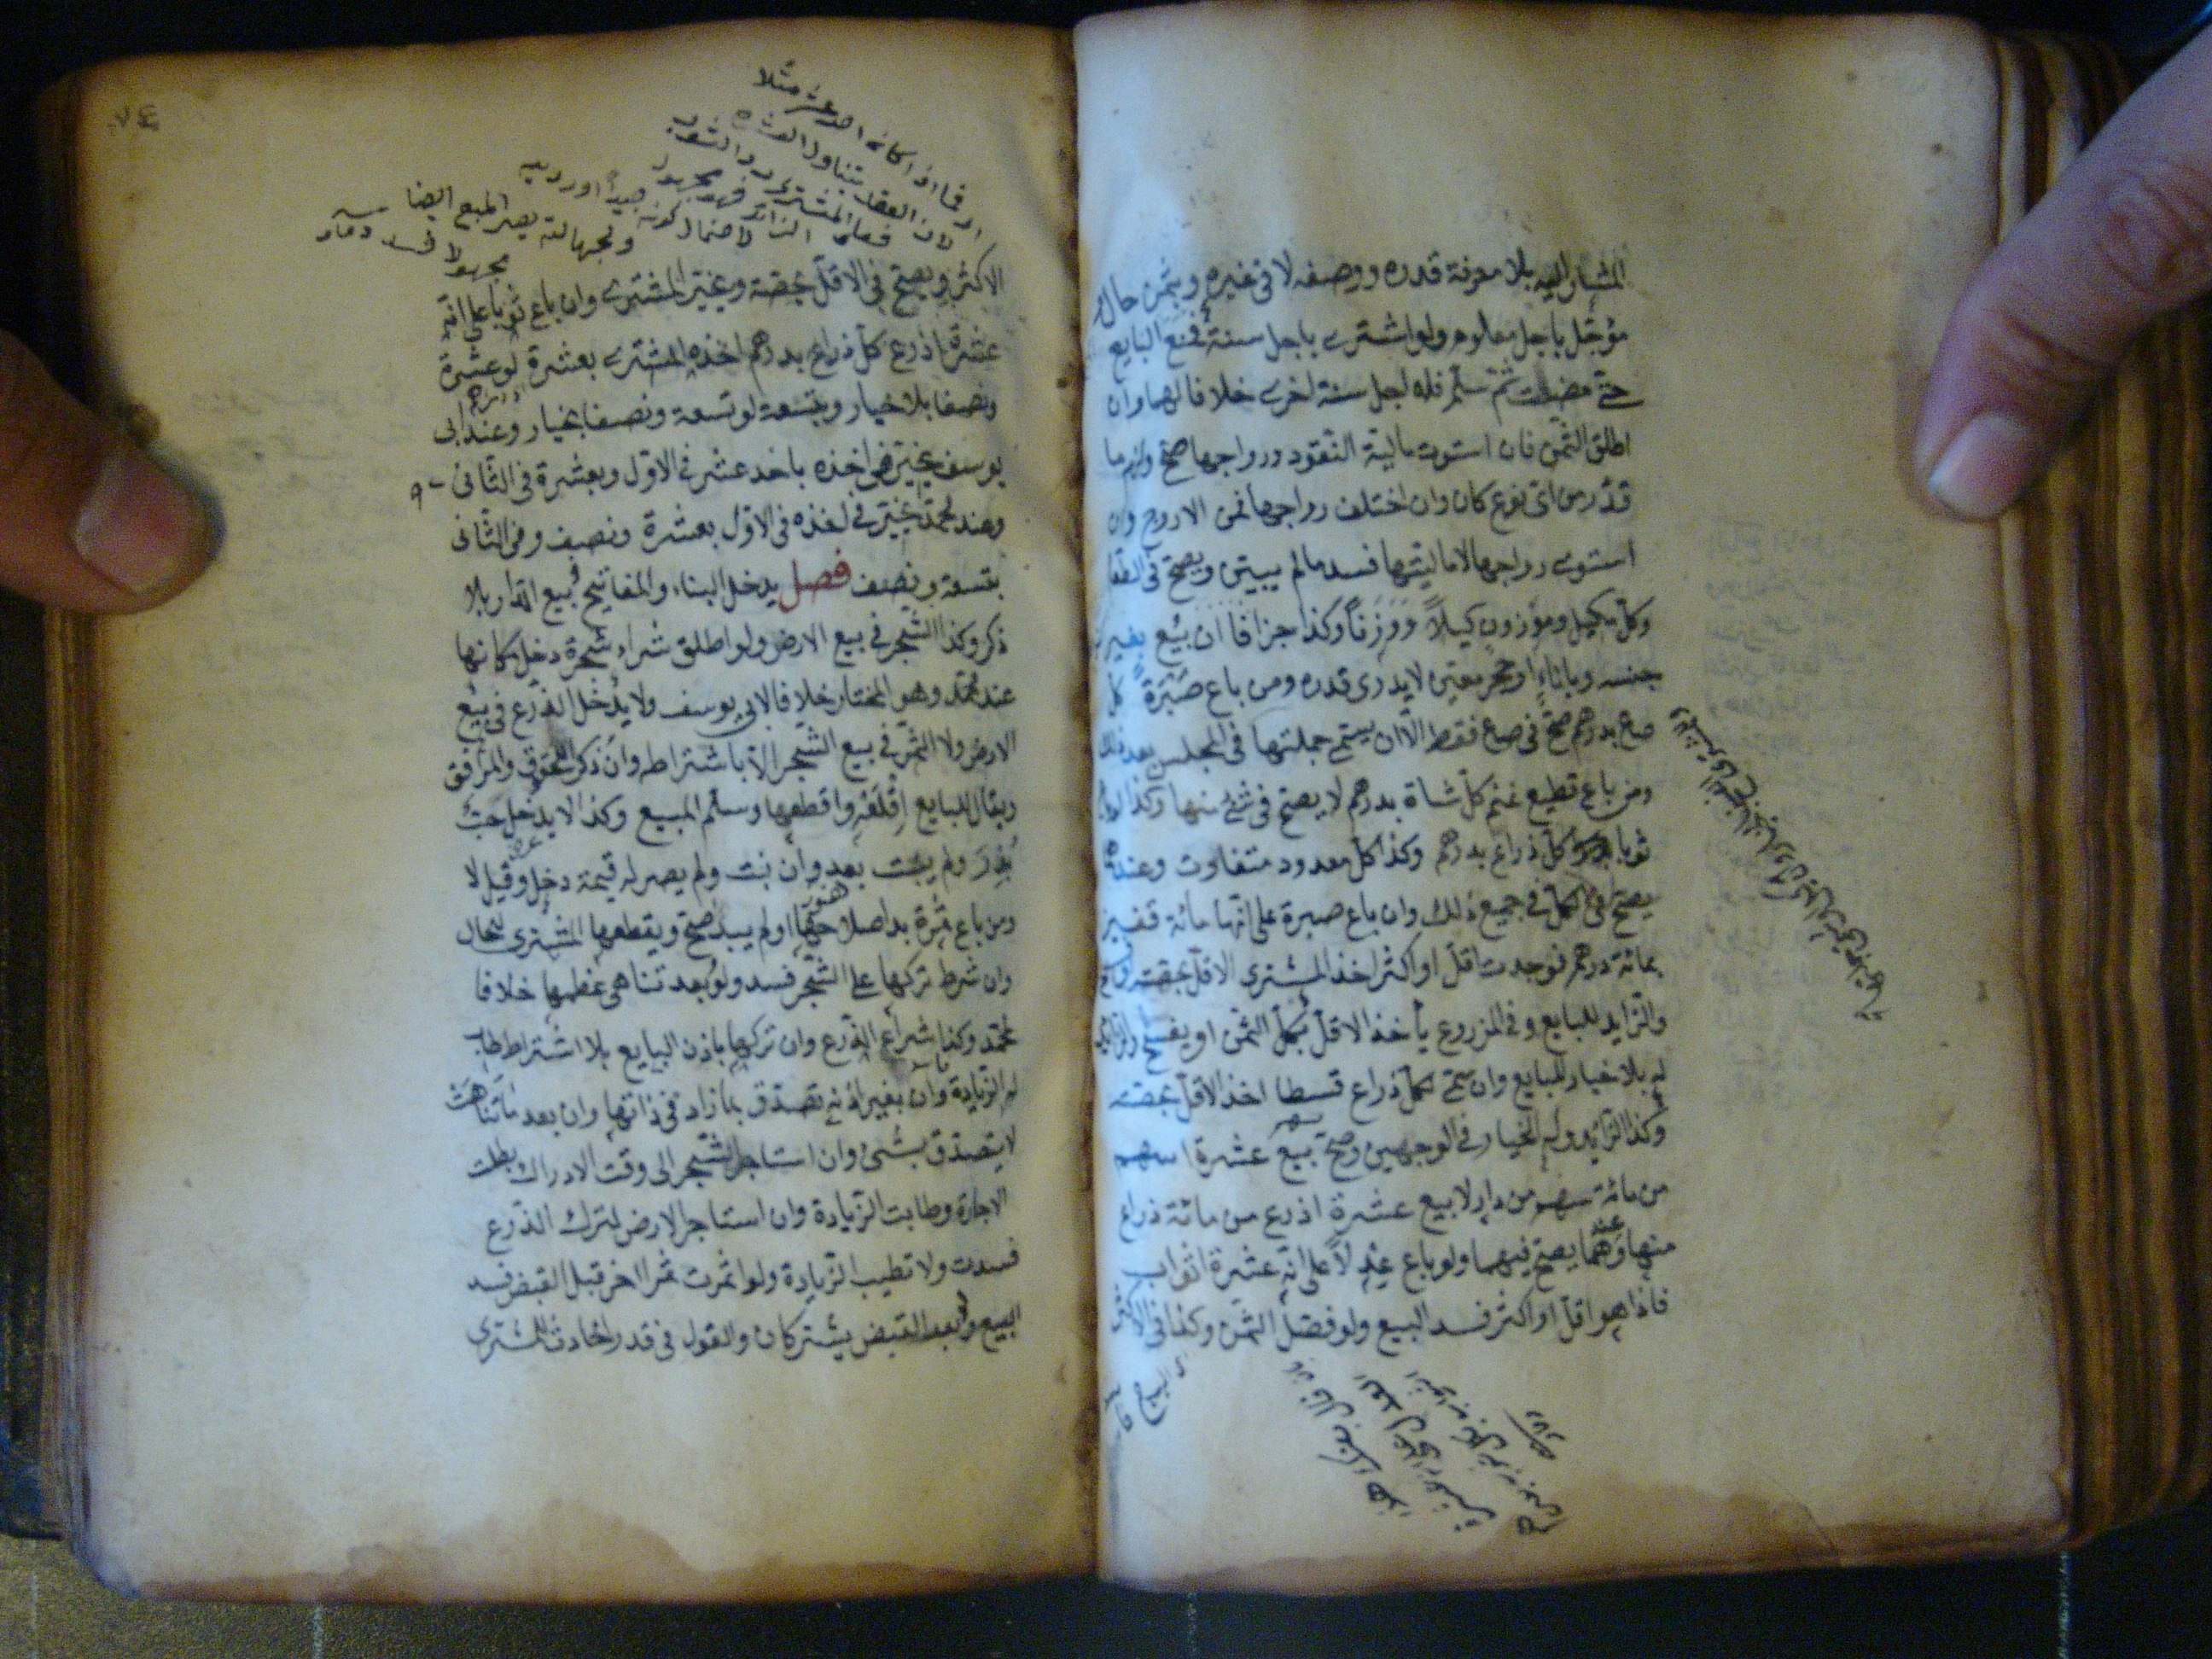 المشار اليه بلا معرفة قدره ووصفه لا في غيره وبثمن حال و
مؤجل باجل معلوم ولو اشترى باجل سنة فمنع البايع
حتى مضت ثم سلم فله اجل سنة اخرى خلافا لهما وان
اطلق الثمن فان استوت مالية النقود ورواجها صح ولزم ما
قدر من اى نوع كان وان اختلف رواجها فمن الاروج وان
استوى رواجها لا ماليتها فسد مالم يبين ويصح في الطعا
وكل مكيل وموزون كيلاً ووزناً وكذا جزافا ان بيع بغير
جنسه وباناء او حجر معين لا يدرى قدره ومن باع صبرة كل
صاع بدرهم صح في صاع فقط الا ان يسمى جملتها في المجلس بعد ذلك
ومن باع قطيع غنم كل شاة بدرهم لا يصح في شئ منها وكذا لو باع
ثوبا كل ذراع بدرهم وكذا كل معدود متفاوت وعندهما
يصح في الكل في جميع ذلك وان باع صبرة على انها مائة قفيز
بمائة درهم فوجدت اقل او اكثر اخذ المشترى الاقل بحصته او فسخ
والزايد للبايع وفي المزروع يأخذ الاقل بكل الثمن او يفسخ والزائد
له بلا خيار للبايع وان سمى لكل ذراع قسطا اخذ الاقل بحصته
وكذا الزائد وله الخيار في الوجهين وصح بيع عشرة اسهم
من مائة سهم من دار لا بيع عشرة اذرع من مائة ذراع
منها وعندهما يصح فيهما ولو باع عدلاً على انه عشرة اثواب
فاذا هو اقل او اكثر فسد البيع ولو فصل الثمن وكذا في الاكثر
اى البيع فاسد
٧٤
وفيما اذا كانه احد عشر مثلا
لان العقد يتناول العشرة
فعلى المشترى رد الثوب
الزائد فهو مجهول
لاحتمال كونه جيداً او رديه
وبجهالته يصير المبيع ايضا
مجهولا فسد
الاكثر ويصح في الاقل بحصته ويخير المشترى وان باع ثوبا على انه
عشرة اذرع كل ذراع بدرهم اخذه المشترى بعشرة لو عشرة
ونصفا بلا خيار وبتسعة لو تسعة ونصفا بخيار وعند ابى
يوسف يخير في اخذه باحد عشر في الاول وبعشرة في الثانى
وعند محمد يخير في اخذه في الاول بعشرة ونصف وفى الثانى
بتسعة ونصف فصل يدخل البناء والمفاتيح في بيع الدار بلا
ذكر وكذا الشجر في بيع الارض ولو اطلق شراء شجرة دخل مكانها
عند محمد وهو المختار خلافا لابى يوسف ولا يدخل الذرع في بيع
الارض ولا الثمر في بيع الشجر الا باشتراطه وان ذكر الحقوق والمرافق
ويقال للبايع اقلعه واقطعها وسلم المبيع وكذا لا يدخل حب
بذر ولم ينبت بعد وان نبت ولم يصر له قيمة دخل وقيل لا
ومن باع ثمرة بدا صلاحها او لم يبد صح ويقطعها المشترى للحال
وان شرط تركها على الشجر فسد ولو بعد تناهى عظمها خلافا
لمحمد وكذا شراء الذرع وان تركها باذن البايع بلا اشتراط طاب
له الزيادة وان بغير اذنه تصدق بما زاد في ذاتها وان بعد ما تناهت
لا يتصدق بشئ وان استاجر الشجر الى وقت الادراك بطلت
الاجارة وطابت الزيادة وان استاجر الارض لترك الذرع
فسدت ولا تطيب الزيادة ولو اثمرت ثمرا اخر قبل القبض فسد
البيع ولو بعد القبض يشتركان والقول في قدر الحادث للمشترى